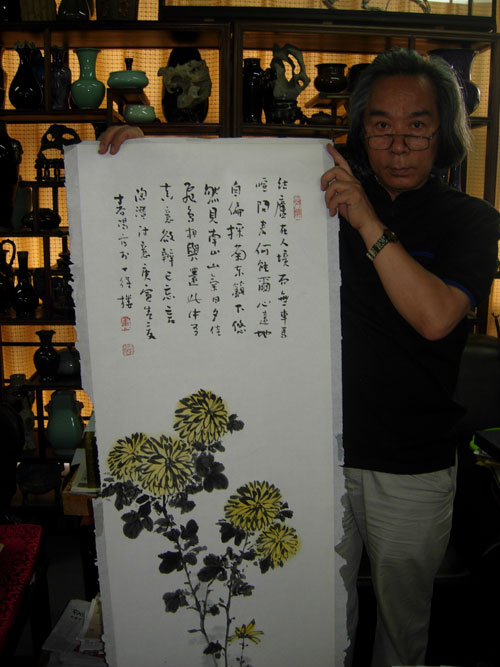 結廬在人境而無車馬
喧問君何能爾心遠地
自偏採菊東籬下悠
然見南山山气日夕佳
飛鳥相與還此中有
真意欲辯已忘言
陶潛詩意庚寅年夏